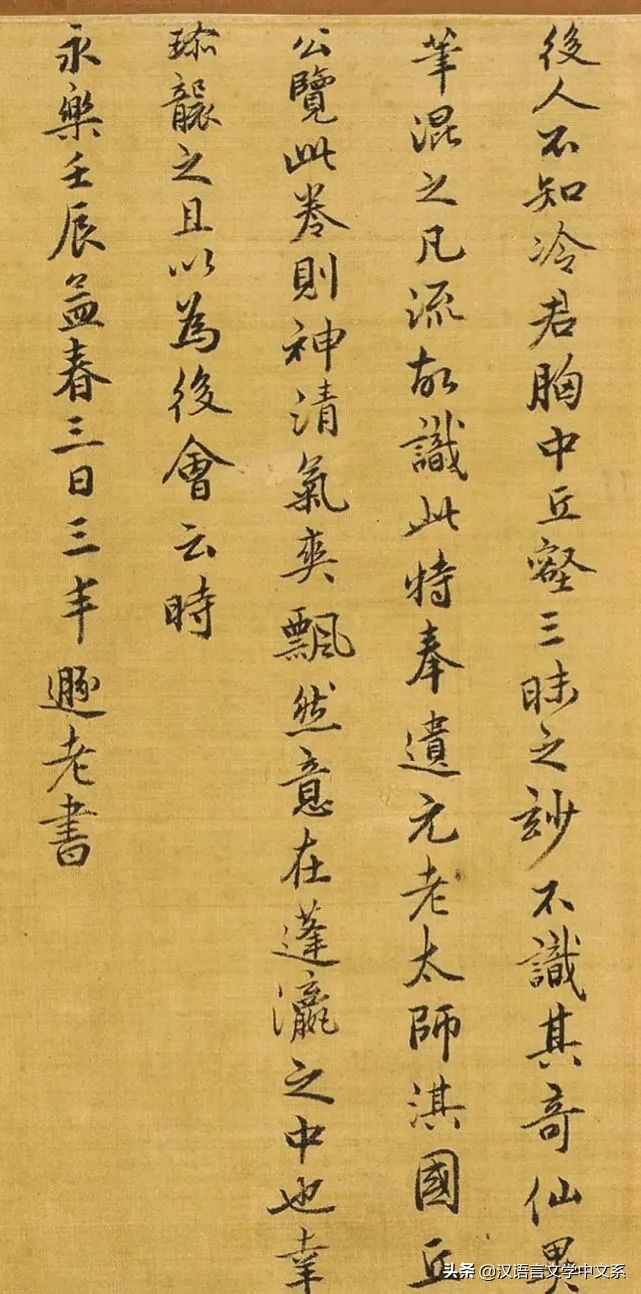 後人不知冷君胸中丘壑三昧之玅不識其奇仙異
筆混之凡流故識此特奉遺元老太師淇國丘
公覽此卷則神清氣爽飄然意在蓬瀛之中也幸
珎襲之且以為後會云時
永樂壬辰孟春三日三丰遯老書
头条 @汉语言文学中文系